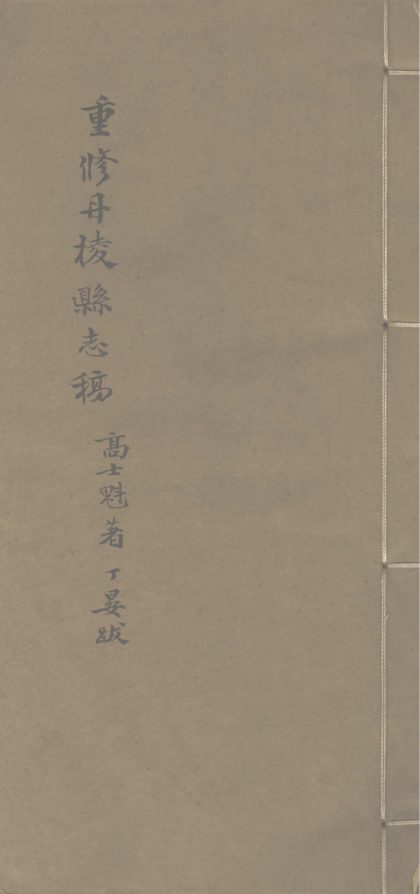 重修丹棱縣志稿
高士魁著 丁晏跋